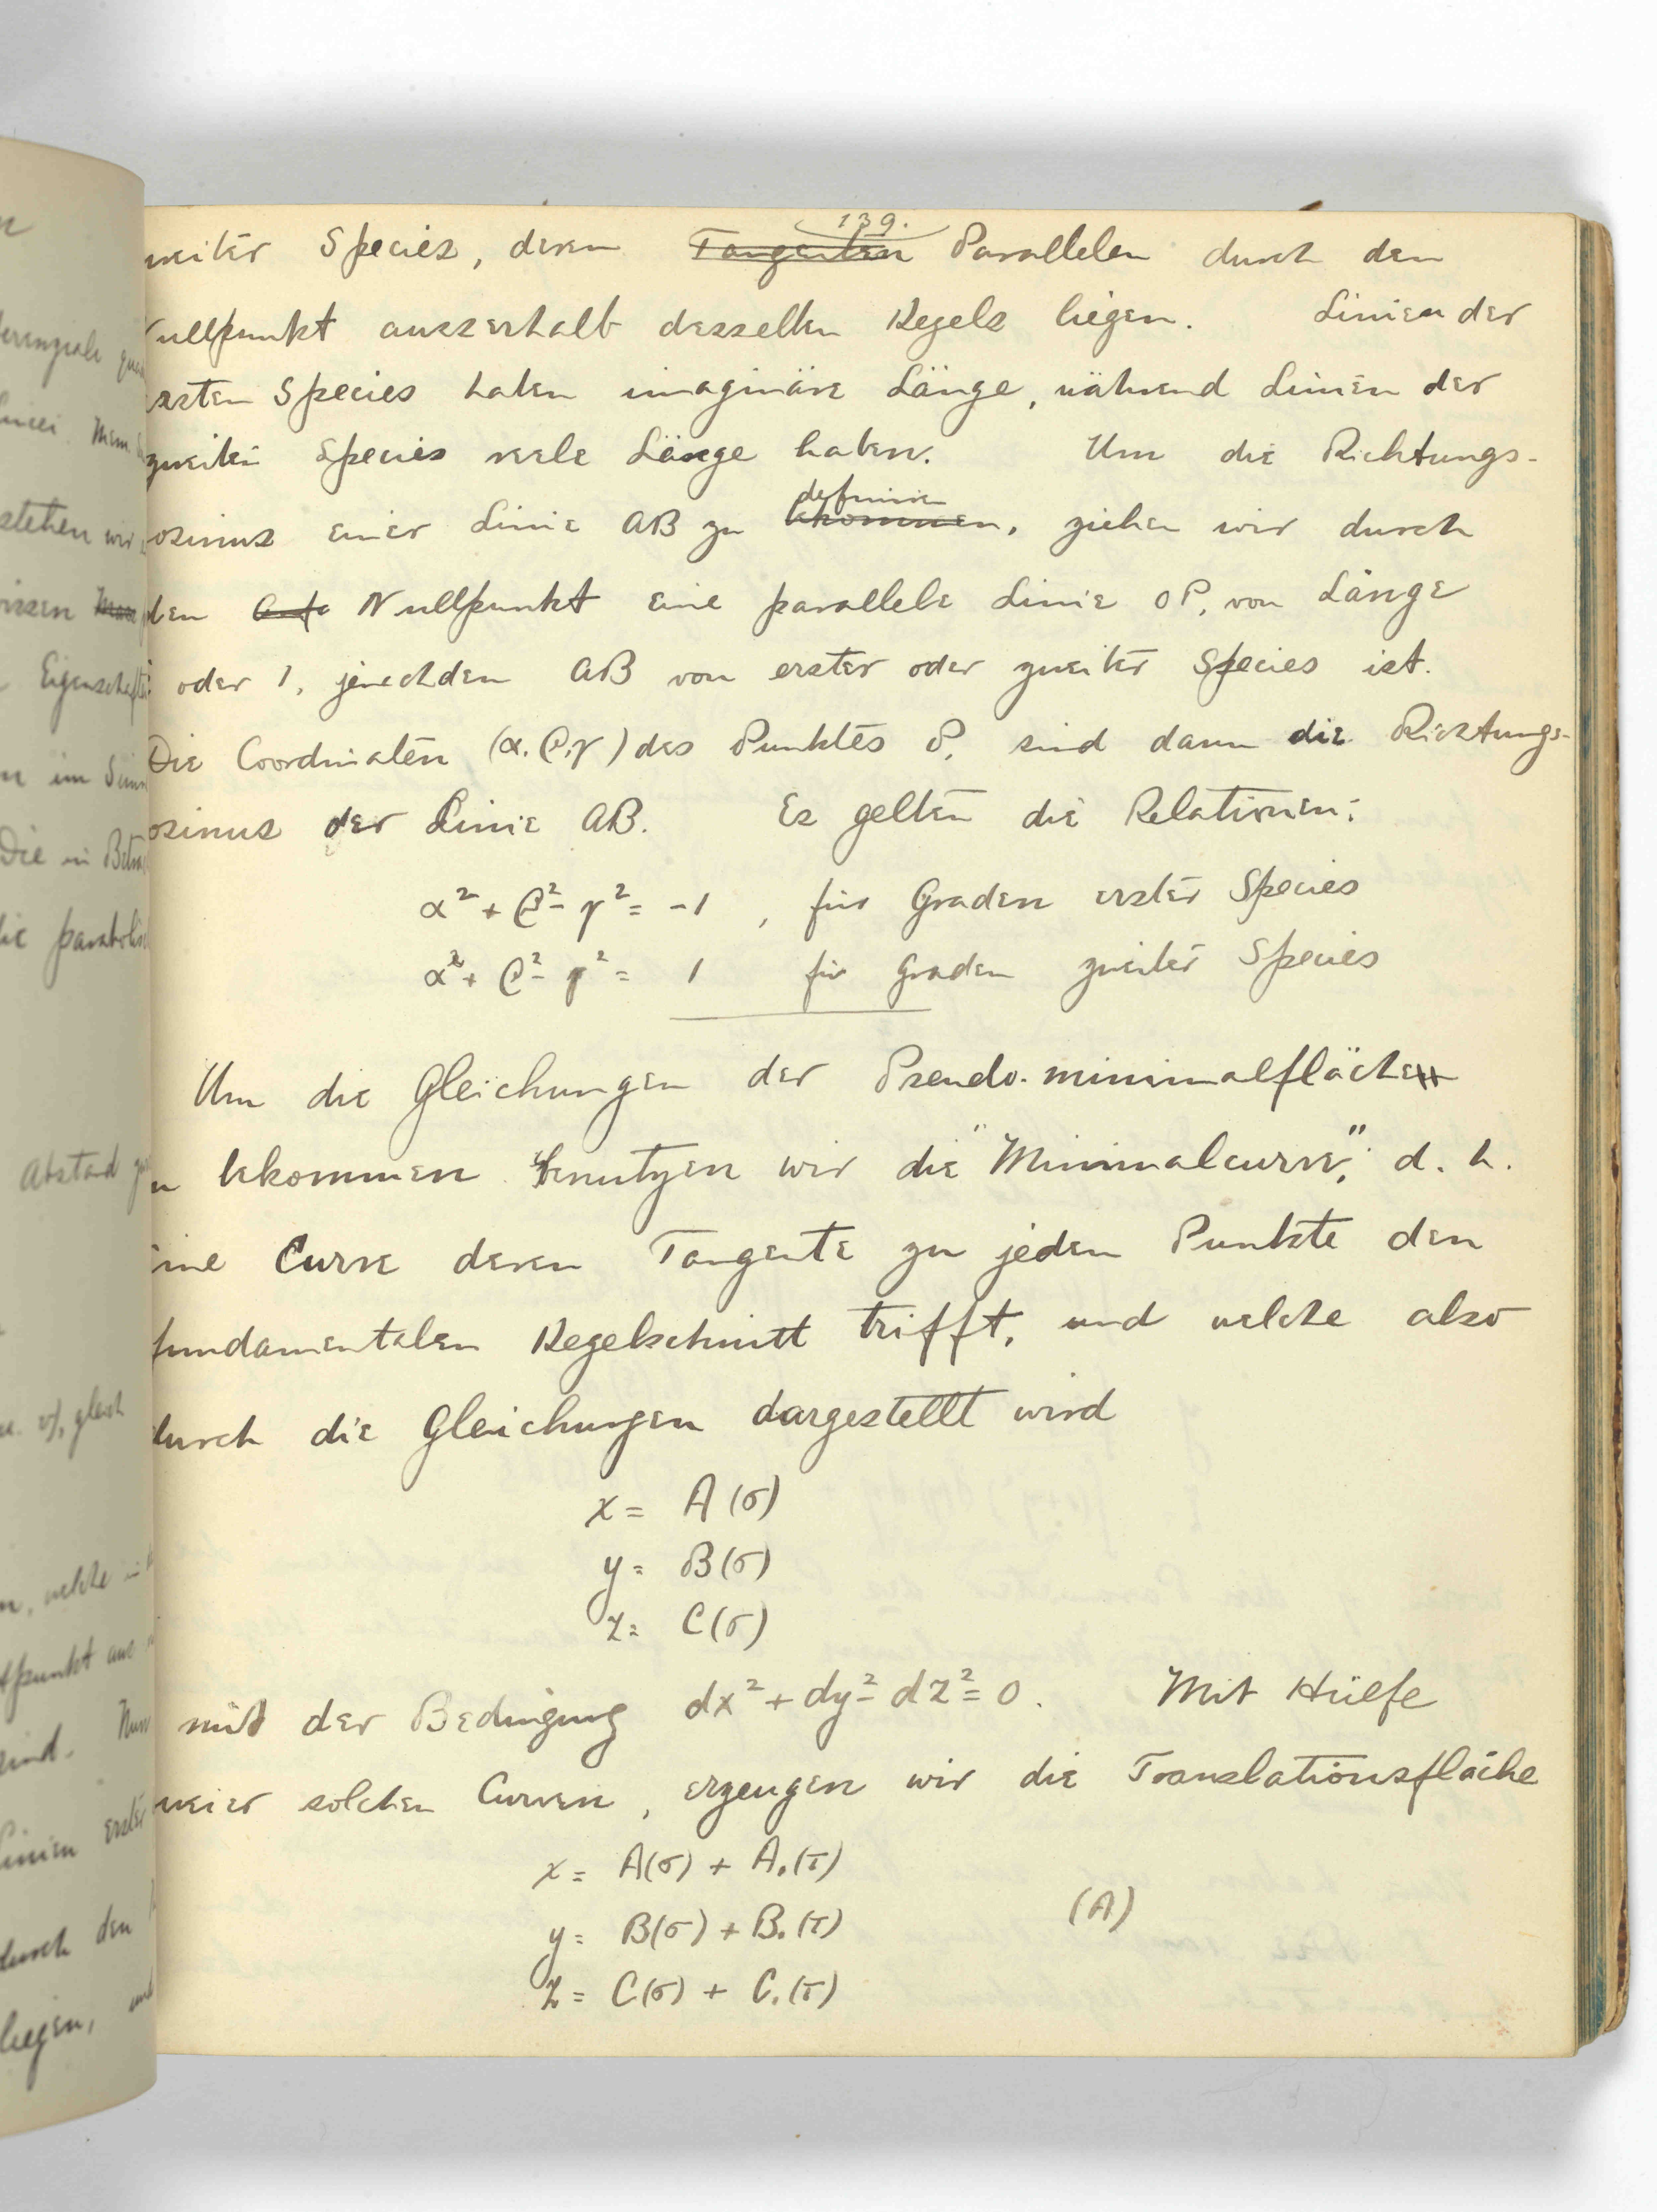 139.
weiter Species, deren Tangenten Parallelen durch den
Nullpunkt ausserhalb desselben Kegels liegen. Linien der
ersten Species haben imaginäre Länge, während Linien der
zweiten Species reele Länge haben. Um die Richtungs-
definiren
cosinus einer Linie AB zu bekommen, ziehen wir durch
den Nullpunkt eine parallele Linie OP, von Länge
i oder 1, jenachdem AB von erster oder zweiter Species ist.
Die Coordinaten (α, β, γ) des Punktes P, sind dann die Richtungs-
cosinus der Linie AB. Es gelten die Relationen:
α² + β² - γ² = -1 , für Graden erster Species
α² + β² - γ² = 1 für Graden zweiter Species
Um die Gleichungen der Pseudo-minimalfläche
zu bekommen benutzen wir die "Minimalcurve", d. h.
eine Curve deren Tangente zu jeden Punkte den
fundamentalen Kegelschnitt trifft, und welche also
durch die Gleichungen dargestellt wird
x = A(σ)
y = B(σ)
z = C(σ)
mit der Bedingung dx² + dy² - dz² = 0. Mit Hülfe
zweier solchen Curven, erzeugen wir die Translationsfläche
x = A(σ) + A₁(τ)
y = B(σ) + B₁(τ) (A)
z = C(σ) + C₁(τ)